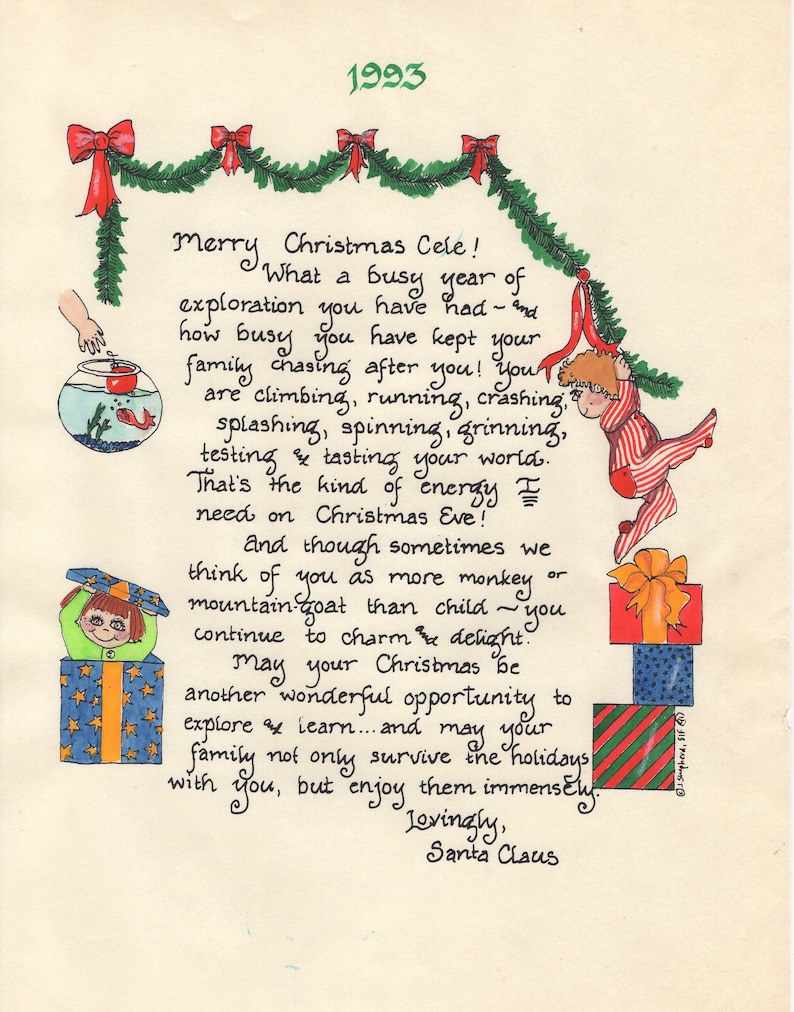 1993
Merry Christmas Cele!
What a busy year of
exploration you have had ~ and
how busy you have kept your
family chasing after you! You
are climbing, running, crashing,
splashing, spinning, grinning,
testing & tasting your world.
That's the kind of energy I
need on Christmas Eve!
And though sometimes we
think of you as more monkey or
mountain-goat than child ~ you
continue to charm and delight.
May your Christmas be
another wonderful opportunity to
explore and learn...and may your
family not only survive the holidays
with you, but enjoy them immensely.
Lovingly,
Santa Claus
© J. Shepherd, SIF